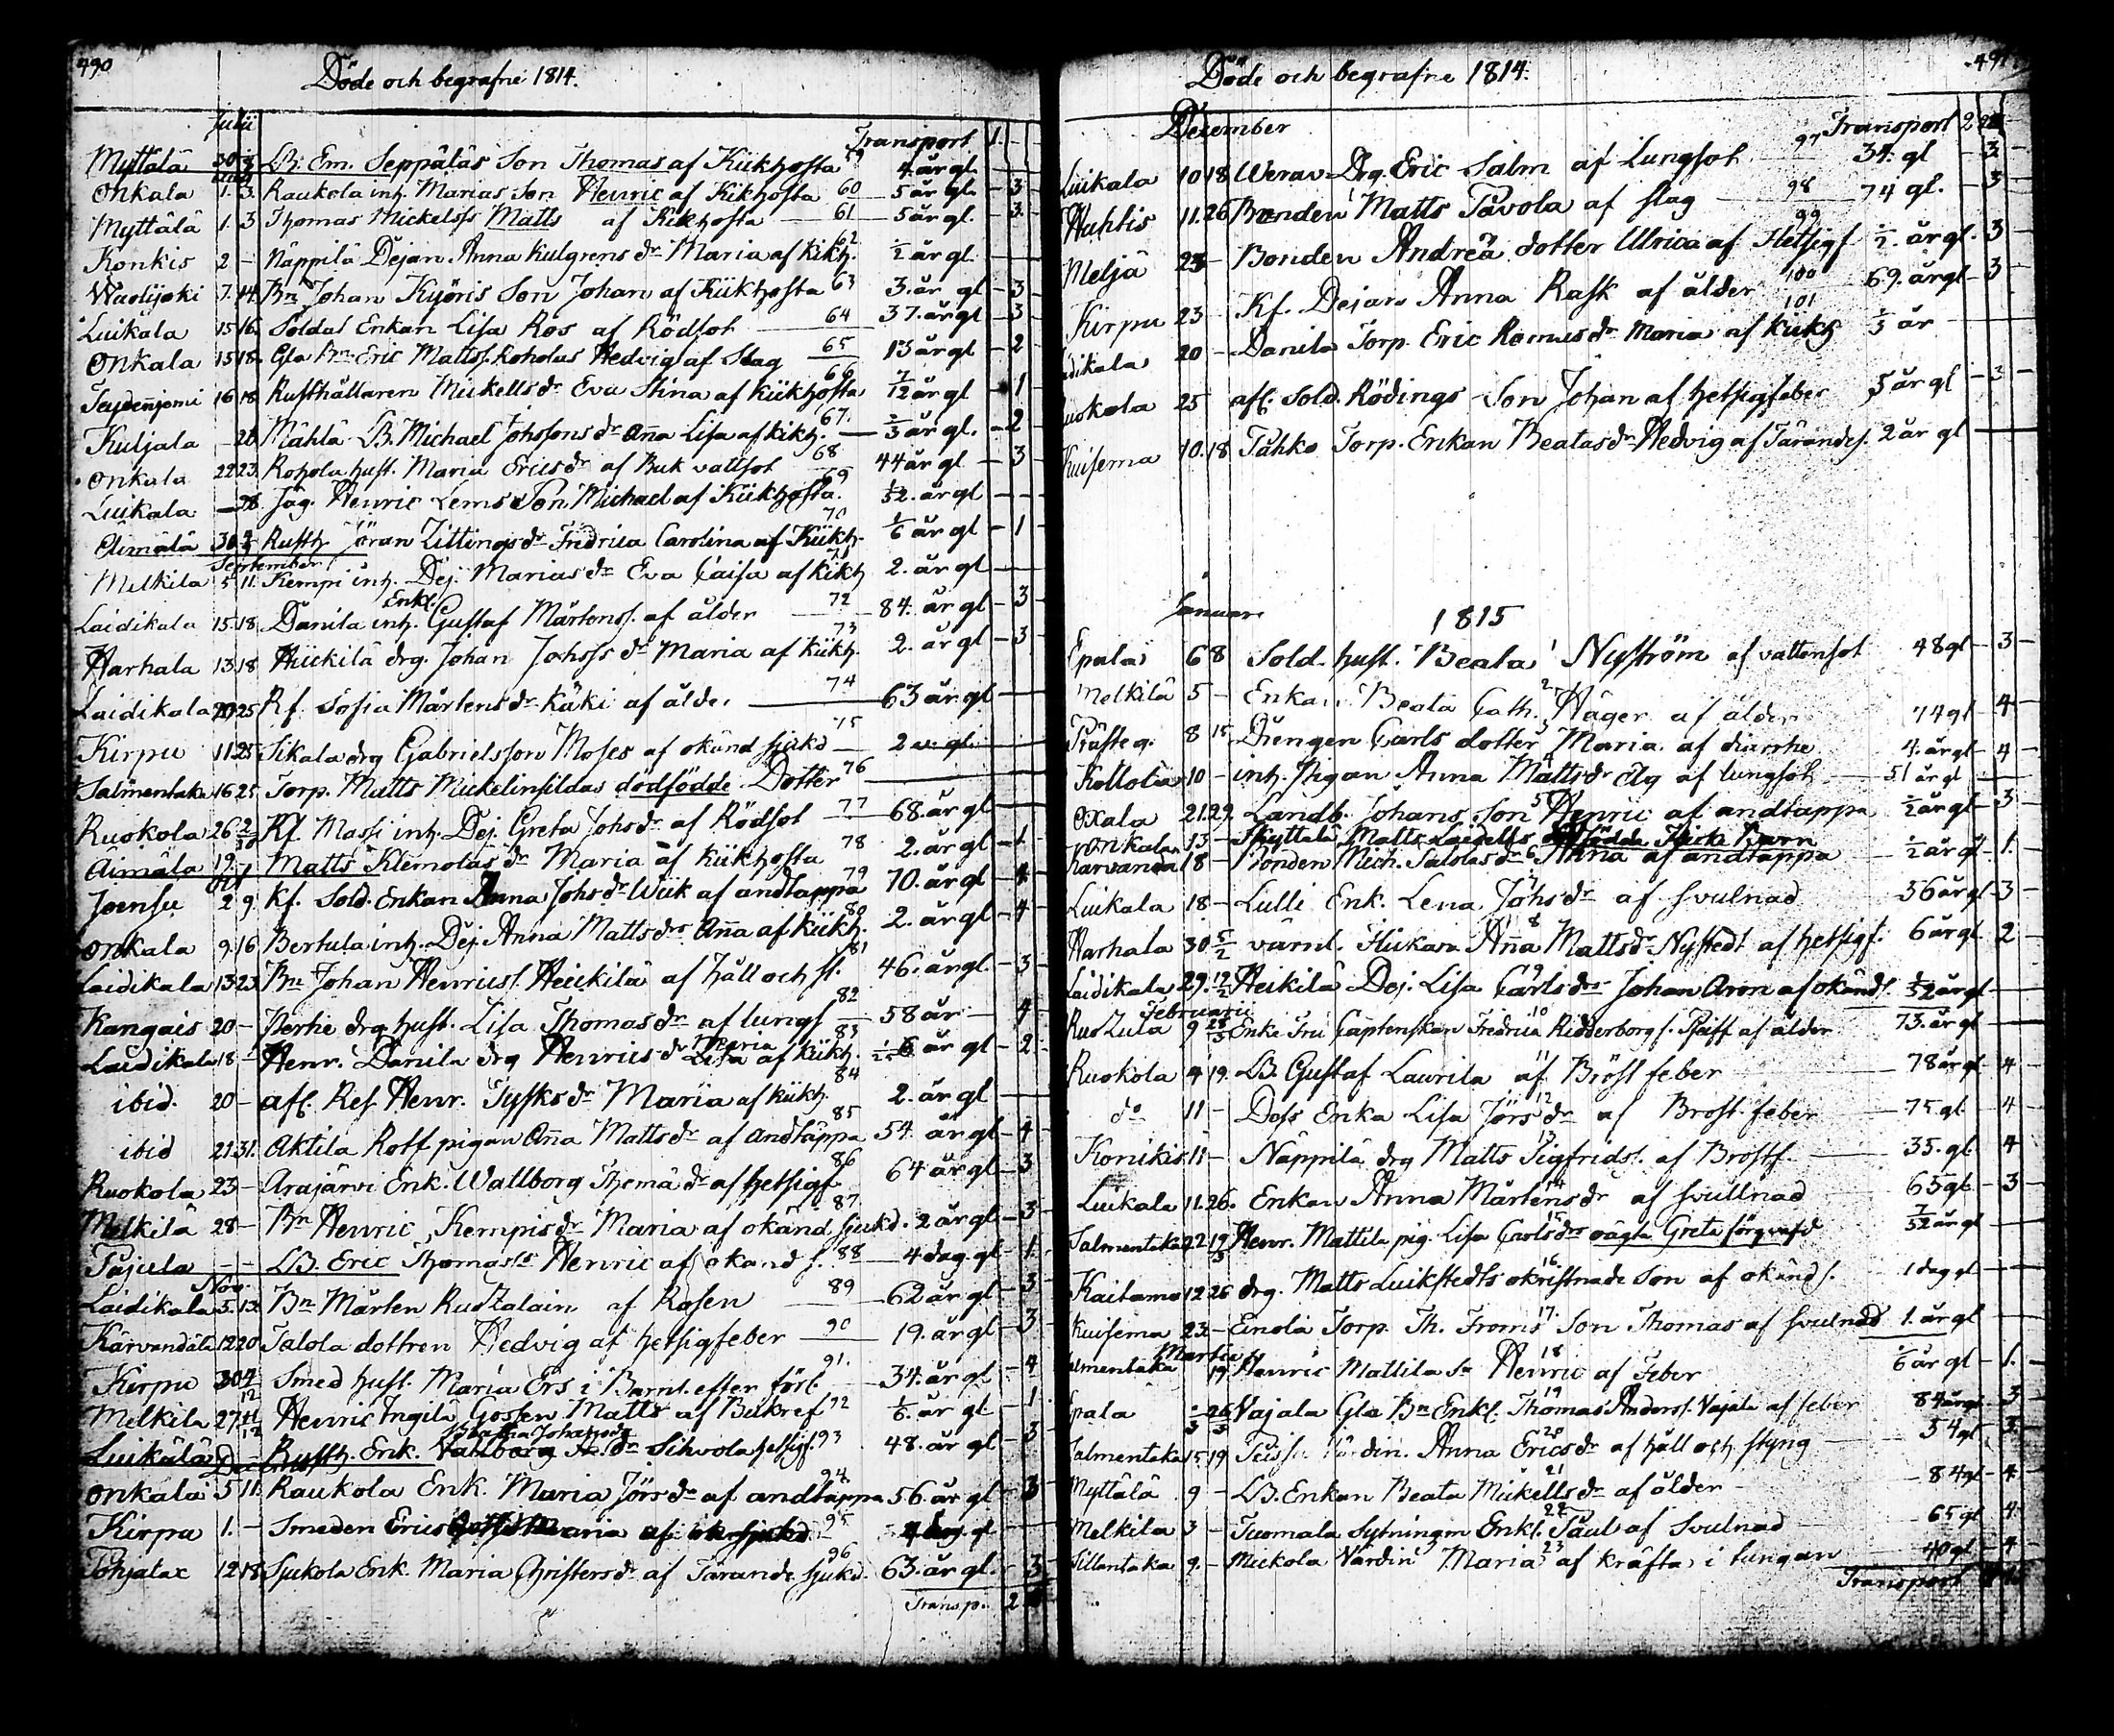 490
Döde och begrafne 1814.
Julii
Transport 1.
Myttälä 30 LB. Em. Seppäläs Son Thomas af Kikhosta 59 4 år gl
Aug
Onkala 1. 3. Raukola inh. Marias Son Henric af Kikhosta 60 5 år gl 3
Myttälä 1. 3 Thomas Mickelss Matts af Kikhosta 61 5 år gl. 3
Konkis 2 - Näppilä Dejan Anna Kulgrens dr Maria af Kikh. 62 1/2 år gl
7. 14. Bn Johan Kyöris Son Johan af Kikhosta 63 3. år gl 3
Luikala 15 16. Soldat Enkan Lisa Ros af Rödsot 64 37. år gl 3
Onkala 15 18. Gla Bn Eric Mattss. Roholas Hedvig af Slag 65 13 år gl 2
16 18 Rusthållaren Mickells dr Eva Stina af Kikhosta 66 7/12 år gl 1
Kuljala - 20. Mählä LB. Michael Johssons dr Aña Lisa af kikh. 67. 2/3 år gl. 2
Onkala 22 23. Rohola hust. Maria Erics dr af Buk vattsot 68 44 år gl 3
Luikala - 28. Jäg. Henric Lems Son Michael af Kikhosta. 69 år gl
Äimälä 30 Rusth Jöran Zittings dr Fredrica Carolina af Kikh. 70 1/6 år gl 1
September
Melkila 5 11. Kempi inh. Dej. Marias dr Eva Caisa af kikh 71 2. år gl
Laidikala 15 18 Danila inh. Enkl. Gustaf Mårtenss. af ålder 72 84. år gl 3
Harhala 13 18 Heickilä drg. Johan Johss dr Maria af kikh. 73 2. år gl 3
Laidikala 20 25 Rf. Sofia Mårtens dr Käki af ålder 74 63 år gl
Kirpu 11 25 Sikala drg Gabrielsson Moses af okänd sjukd 75 2 gl.
Salmentaka 16 25 Torp. Matts Mickelinsildas dödfödde Dotter 76
Ruokola 26 2/10 Kf. Massi inh. Dej. Greta Johs dr af Rödsot 77 68. år gl
Äimälä 19. - Matts Klemolas dr Maria af Kikhosta 78 2. år gl 1
Oct
Joensu 2 9. Kf. Sold. Enkan Anna Johs dr Wiik af andtäppa 79 70. år gl 4
Onkala 9. 16 Bertula inh. Dej. Anna Matts drs Aña af Kikh. 80 2. år gl 4
Laidikala 13 23. Bn Johan Henrics. Heickilä af håll och st. 81 46. år gl. 3
Kangais 20 - Perhe drg hust. Lisa Thomas dr af lungs 82 58 år 4
Laidikala 18 - Henr. Danila drg Henrics dr Maria Lisa af Kikh. 83 år gl 2
ibid. 20 - afl. Ref. Henr. Tysks dr Maria af kikh. 84 2. år gl
ibid 21 31. Aktila Rotf pigan Aña Matts dr af andtäppa 85 54. år gl 4
Ruokola 23 - Arajärvi Enk. Wallborg Thomä dr af hetsigf 86 64 år gl 3
Melkilä 28 - Bn Henric Kempis dr Maria af okänd sjukd. 87 2 år gl 3
Pajula - - LB. Eric Thomass Henric af okänd s. 88 4 dag gl 1.
Nov
Laidikala 5. 13. Bn Mårten Rudzalain af Rosen 89 62 år gl 3
Kärvändälä 12 20 Talola dottren Hedvig af hetsigfeber 90 19. år gl 3
Kirpu 30 4/12 Smed hust. Maria Ers i Barns. efter förl. 91. 34. år gl 4
Melkila 27 11/12 Henric Ingilä Gossen Matts af Bukref 92 1/6. år gl 1
Luikälä Rusth. Enk. Vahlborg dr Sihvola hetsigf. 93 48. år gl 3
December
Onkala 5 11. Raukola Enk. Maria Jörs dr af andtäppa 94 56. år gl 3
Kirpu 1. - Smeden Erics Maria af okänd sjukd 95 gl
Pohjalax 12 18 Sjukola Enk. Maria Christers dr af Tärande sjukd. 96 63. år gl. 3
Transp. 2
491
Döde och begrafne 1814.
December
Transport 2
Luikala 10 18 Werav. Drg. Eric Salm af Lungsot 97 34. gl 3.
Huhtis 11. 26 Bonden Matts Tåvola af slag 98 74 gl. 3
Meljä 23 - Bonden Andreä dotter Ulrica af Hetsigf 99 1/2. år gl. 3
Kirpu 23 - Kf. Dejan Anna Rask af ålder 100 69. år gl 3
Laidikala 20 - Danila Torp. Eric Romus dr Maria af Kikh 101 1/3 år
Ruokola 25 afl. Sold. Rödings Son Johan af hetsigfeber 5 år gl 3
Kuisema 10. 18 Tähkä Torp. Enkan Beatas dr Hedvig af Tärandes. 2 år gl
Januari
1815
Epala 6 8 Sold. hust. Beata Nyström af vattensot 1 48 gl 3
Melkilä 5 - Enkan Beata Cath. Häger af ålder 2 74 gl 4
Präste g. 8 15. Drengen Carls dotter Maria af diarrhe 3 4. år gl 4
Kottola 10 - inh. Pigan Anna Matts dr Äg af lungsot 51 år gl
Oxala 21. 29. Landb. Johans Son Henric af andtäppa 5 1/2 år gl 3
Onkala 13 - Skyttälä Matts
Kärvändä 18 - Bonden Mich. Salolas dr Anna af andtäppa 6 1/2 år gl 1.
Luikala 18 - Lulli Enk. Lena Johs dr af svulnad 7 56 år gl 3
Harhala 30 5/2 värnl. Flickan Aña Matts dr Nystedt af hetsigf. 8 6 år gl. 2
Laidikala 29. 12/2 Heikilä Dej. Lisa Carls drs Johan Aron af okänd s. 9 år gl
Februarii
9 Enke Fru Captenskan Fredrica Ridderborg f. Pfaiff af ålder 10 73. år gl
Ruokola 4 19. LB. Gustaf Laurila af Bröst feber 11 78 år gl. 4
do 11 - Dess Enka Lisa Jörs dr af Bröst feber 12 75 gl. 4
Konikis 11 - Näppilä drg Matts Sigfridss. af Bröstf. 13 35. gl. 4
Luikala 11. 26. Enkan Anna Mårtens dr af svullnad 14 65 gl 3
Salmentaka 22 19/3 Henr. Mattila pig. Lisa Carls drs oägta Greta förqvafd 15 år gl
Kaitamo 12 26 drg. Matts Luikstedts okristnade Son af okänd s. 16. 1 dag gl
Kuisema 23. - Einola Torp. Th. Froms Son Thomas af svulnad 17. 1. år gl
Martii
Salmentaka 19 Henric Mattila Sn Henric af Feber 18 1/6 år gl 1.
Epala 26/3 Vajala Gla Bn Enkl. Thomas Anderss. Vajala af feber 19 84 år gl 3
Salmentaka 15 19 Värdin. Anna Erics dr af håll och styng 20 54 gl 3.
Myttälä 9 - LB. Enkan Beata Mickells dr af ålder 21 84 gl 4.
Melkila 3 - Tuomala Sytningm Enkl. Paul af Svulnad 22 65 gl 4.
Sillantaka 9. - Mickola Värdin Maria af kräfta i tungan 23 40 gl 4
Transport